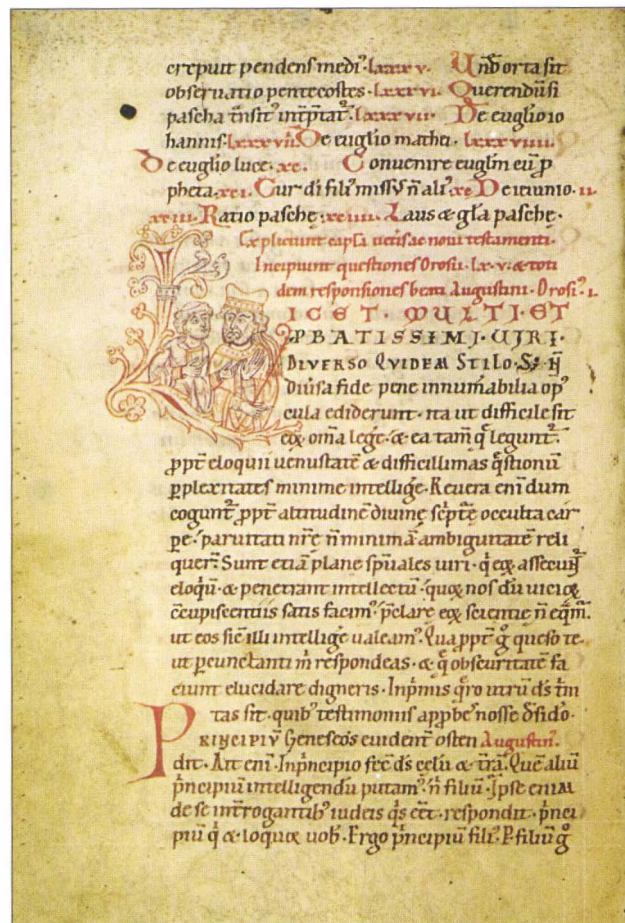 crepuit pendens medi᾽. lxxxv. Vnđ orta sit
obseruatio pentecostes. lxxxvi. Querendū si
pascha t̄nsit᾽ int̄p̄tat᾽. lxxxvii. De euglio io
hannis. lxxxviii. De euglio mathei. lxxxviiii.
De euglio luce. xc. Conuenire euglm eū p̄
pheta. xci. Cur di fili᾽ miss᾽ n̄ ali᾽. xc De ieiunio. ii.
xciii. Ratio pasche. xciiii. Laus & gl̄a pasche.
Expliciunt capl̄a ueteris ac noui testamenti.
Incipiunt questiones Orosii. lx. v. & toti
dem responsiones beati Augustini. Orosi᾽. i.
LICET. MULTI. ET
PBATISSIMI. UIRI.
DIVERSO QVIDEM STILO. S; n̄
diūsa fide pene innum̄abilia op᾽
cula ediderunt. ita ut difficile sit
eoꝝ om̄a lege᾽. & ea tam̄ q̄ legunt᾽.
p̄pt̄ eloquii uenustatē & difficillimas q̄stionū
ꝑplexitates minime intellige᾽. Reuera eni dum
cogunt᾽ p̄pt̄ altitudinē diuine sc̄pt̄e occulta car
pe᾽. paruitati nr̄e n̄ minimā ambiguitatē reli
quer᾽. Sunt etiā plane sp̄uales uiri. q̄ eoꝝ assecunt᾽
eloqū. & penetrant intellectū. quoꝝ nos dū uicioꝝ
c̄cupiscentiis satis facim᾽. p̄clare eoꝝ scientie n̄ eq̄m᾽.
ut eos sic̄ illi intellige᾽ ualeam᾽. Quapp̄t᾽ g᾽ queso te.
ut pcunctanti m᾽ respondeas. & q̄ obscuritatē fa
ciunt elucidare digneris. Inp̄mis q̄ro utrū ds̄ t̄ni
tas sit. quib᾽ testimoniis app̄be᾽ nosse d̄sido.
PRINCIPIV̄ Geneseos euident̄ osten Augustin᾽.
dit. Ait eni. Inp̄ncipio fec̄ ds̄ celū & t̄rā. Quē aliū
p̄ncipiū intelligendū putam᾽. n̄ filiū. Ipse enim
de se int̄rogantib᾽ iudeis q̄s cēt. respondit. p̄nci
piū q̄ & loquor uob᾽. Ergo p̄ncipiū fili᾽. P filiū g᾽